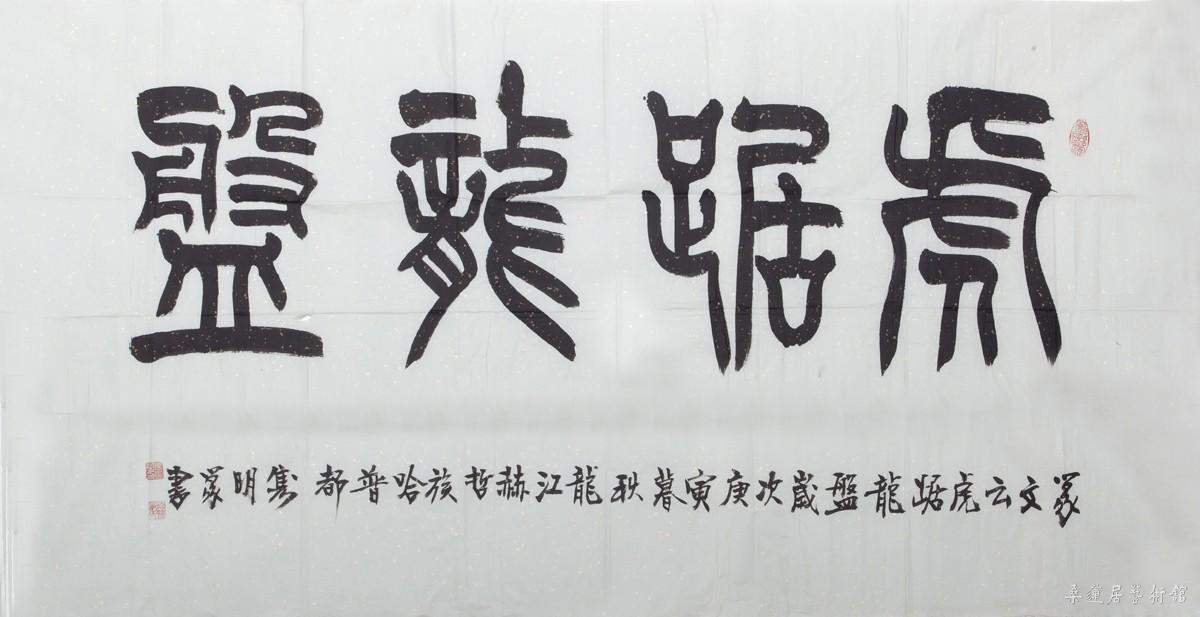 虎踞龍盤
篆文云虎踞龍盤歲次庚寅暮秋龍江赫哲族哈普都隽明篆書
桑蓮居藝術館